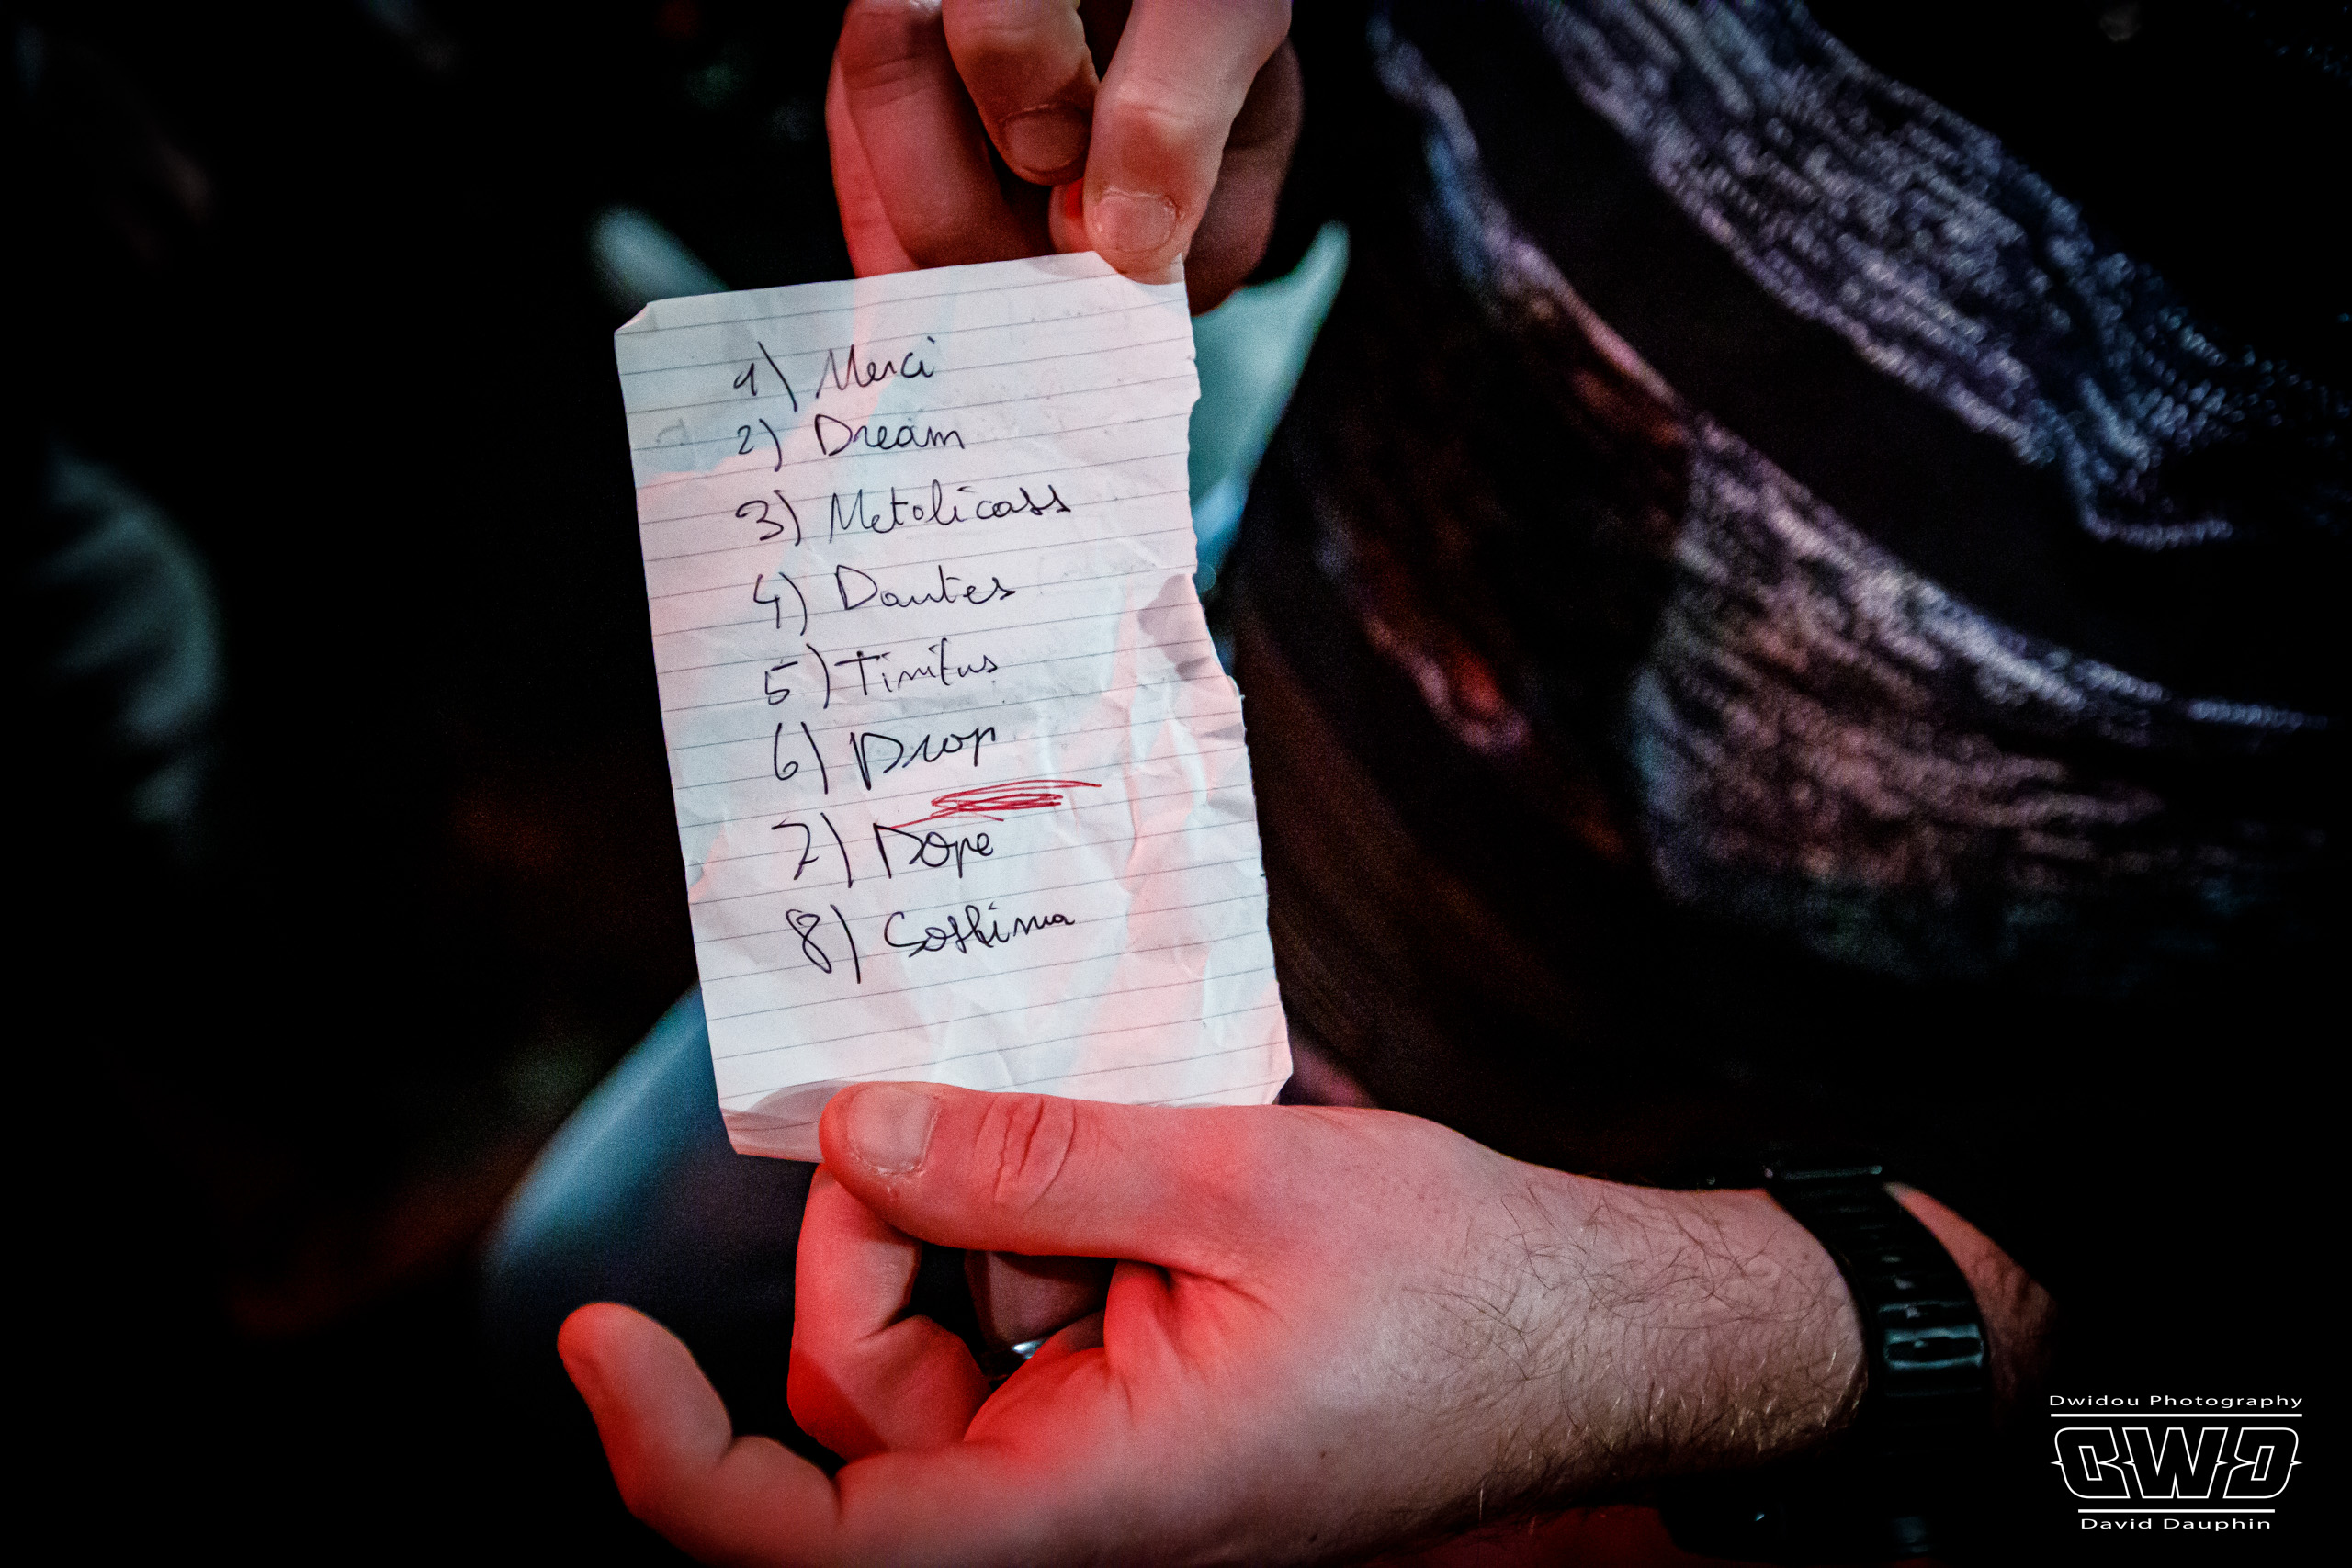 1) Merci
2) Dream
3) Metolicass
4) Dantes
5) Tinitus
6) Drop
7) Dope
8)
Dwidou Photography
DWD
David Dauphin